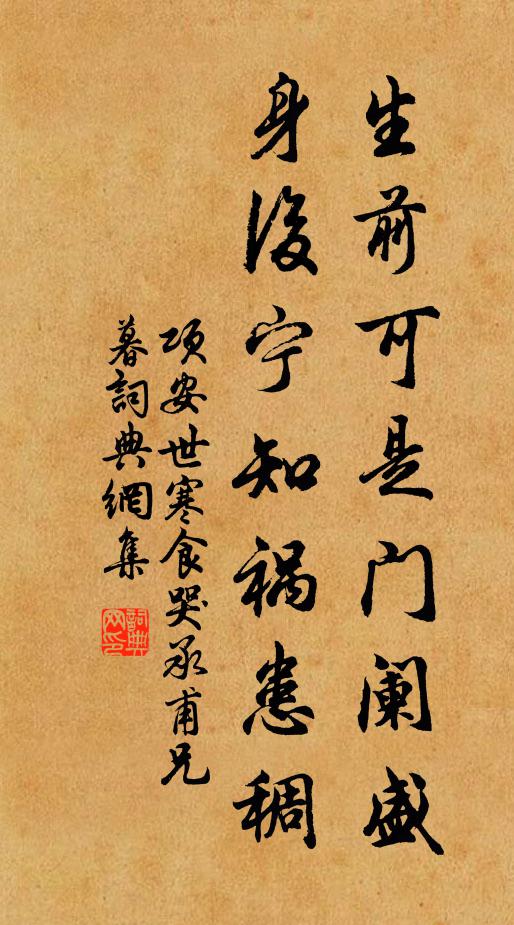 生前可是门阑盛
身後宁知祸患稠
项安世寒食哭承甫兄
墓詞典網集
詞典
网印